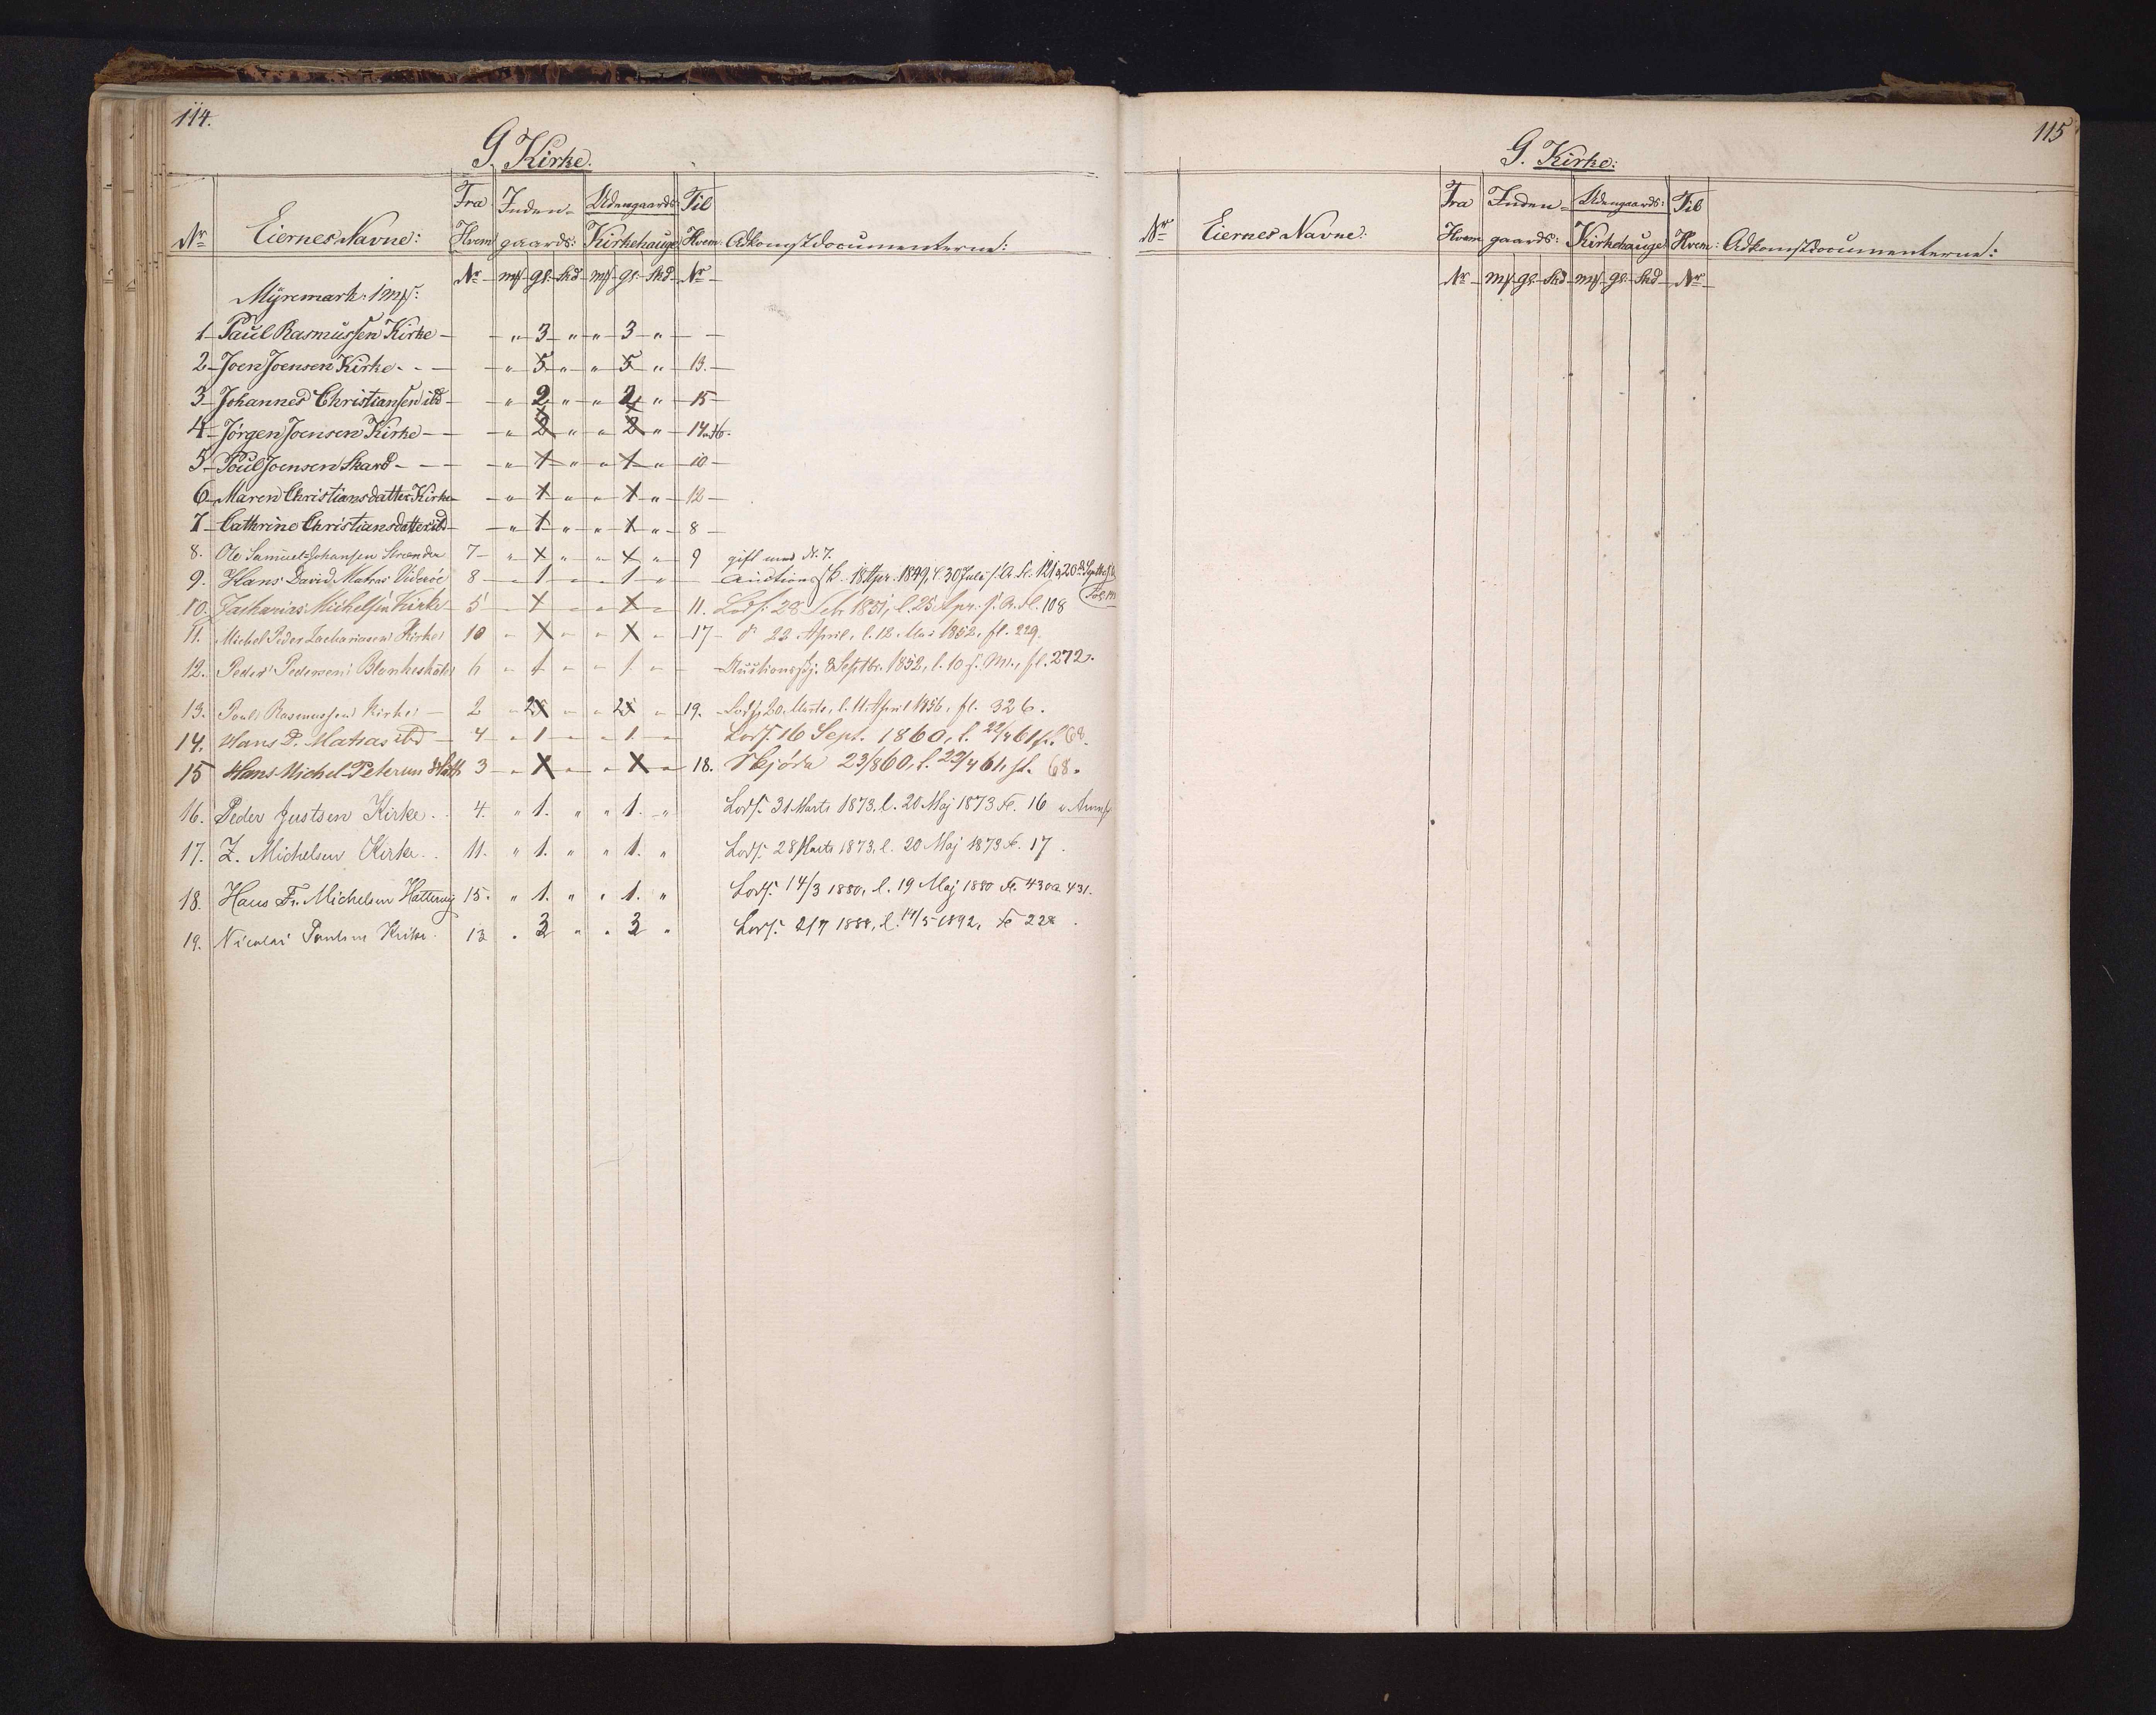 114.
G. Kirke.
Nr Eiernes Navne: Fra Hvem Inden- gaards: Udengaards Kirkehauge Til Hvem: Adkomstdocumenterne:
Nr mk gl. skd mk gl. skd Nr
Myremark 1 mk:
1 Paul Rasmussen Kirke - " 3 " " 3 "
2 Joen Joensen Kirke - " 5 " " 5 " 13.
3 Johannes Christiansen ibd " 2 " " 2 " 15
4 Jørgen Joensen Kirke " 2 " " 2 " 14 16.
5 Poul Joensen Skard " 1 " " 1 " 10
6 Maren Christiansdatter Kirke " 1 " " 1 " 12
7 Cathrine Christiansdatter ibd " 1 " " 1 " 8
8. Ole Samuel Johansen Strænder 7 " 1 " " 1 " 9 gift med Nr. 7.
9. Hans David Matras Viderøe 8 " 1 " " 1 " Auctionssk. 18 Apr. 1849, l. 30 Juli s. A. Fl. 121 & 20d Septbr
10. Zacharias Michelsen Kirke 5 " 1 " " 1 " 11. Lods: 28 Febr 1851, l. 25 Apr. s. A. Fl. 108
11. Michel Peder Zachariasen Kirke 10 " 1 " " 1 " 17 do 22 April, l. 12 Mai 1852, fl. 229.
12. Peder Pedersen Blankeskåle 6 " 1 " " 1 " Auctionsskj. 8 Septbr. 1852, l. 10 s. M., fl. 272.
13. Poul Rasmussen Kirke 2 " 2 " " 2 " 19. Lods. 20. Marts, l. 11. April 1856, fl. 326.
14. Hans D. Matras ibd 4 " 1 " " 1 " Lods. 16 Sept. 1860, l. 22/4 61 fl. 68.
15 Hans Michel Petersen Hatt 3 " 1 " " 1 " 18. Skjöde 23/8 60, l. 22/4 61, fl. 68.
16. Peder Justsen Kirke . 4. " 1. " " 1. " Lods. 31 Marts 1873. l. 20 Maj 1873 Fl. 16
17. Z. Michelsen Kirke . 11. " 1. " " 1. " Lods. 28 Marts 1873, l. 20 Maj 1873 Fl. 17.
18. Hans Fr. Michelsen Hattervig 15. " 1. " " 1. " Lods. 14/3 1880, l. 19 Maj 1880 Fl. 430 a 431.
19. Nicolai Paulsen Kirke. 13 " 3 " " 3 " Lods. 2/7 1888, l. 14/5 1892, Fl 228.
115
G. Kirke:
Nr Eiernes Navne: Fra Hvem Inden- gaards: Udengaards: Kirkehauge Til Hvem: Adkomstdocumenterne:
Nr mk gl. skd mk gl. skd Nr